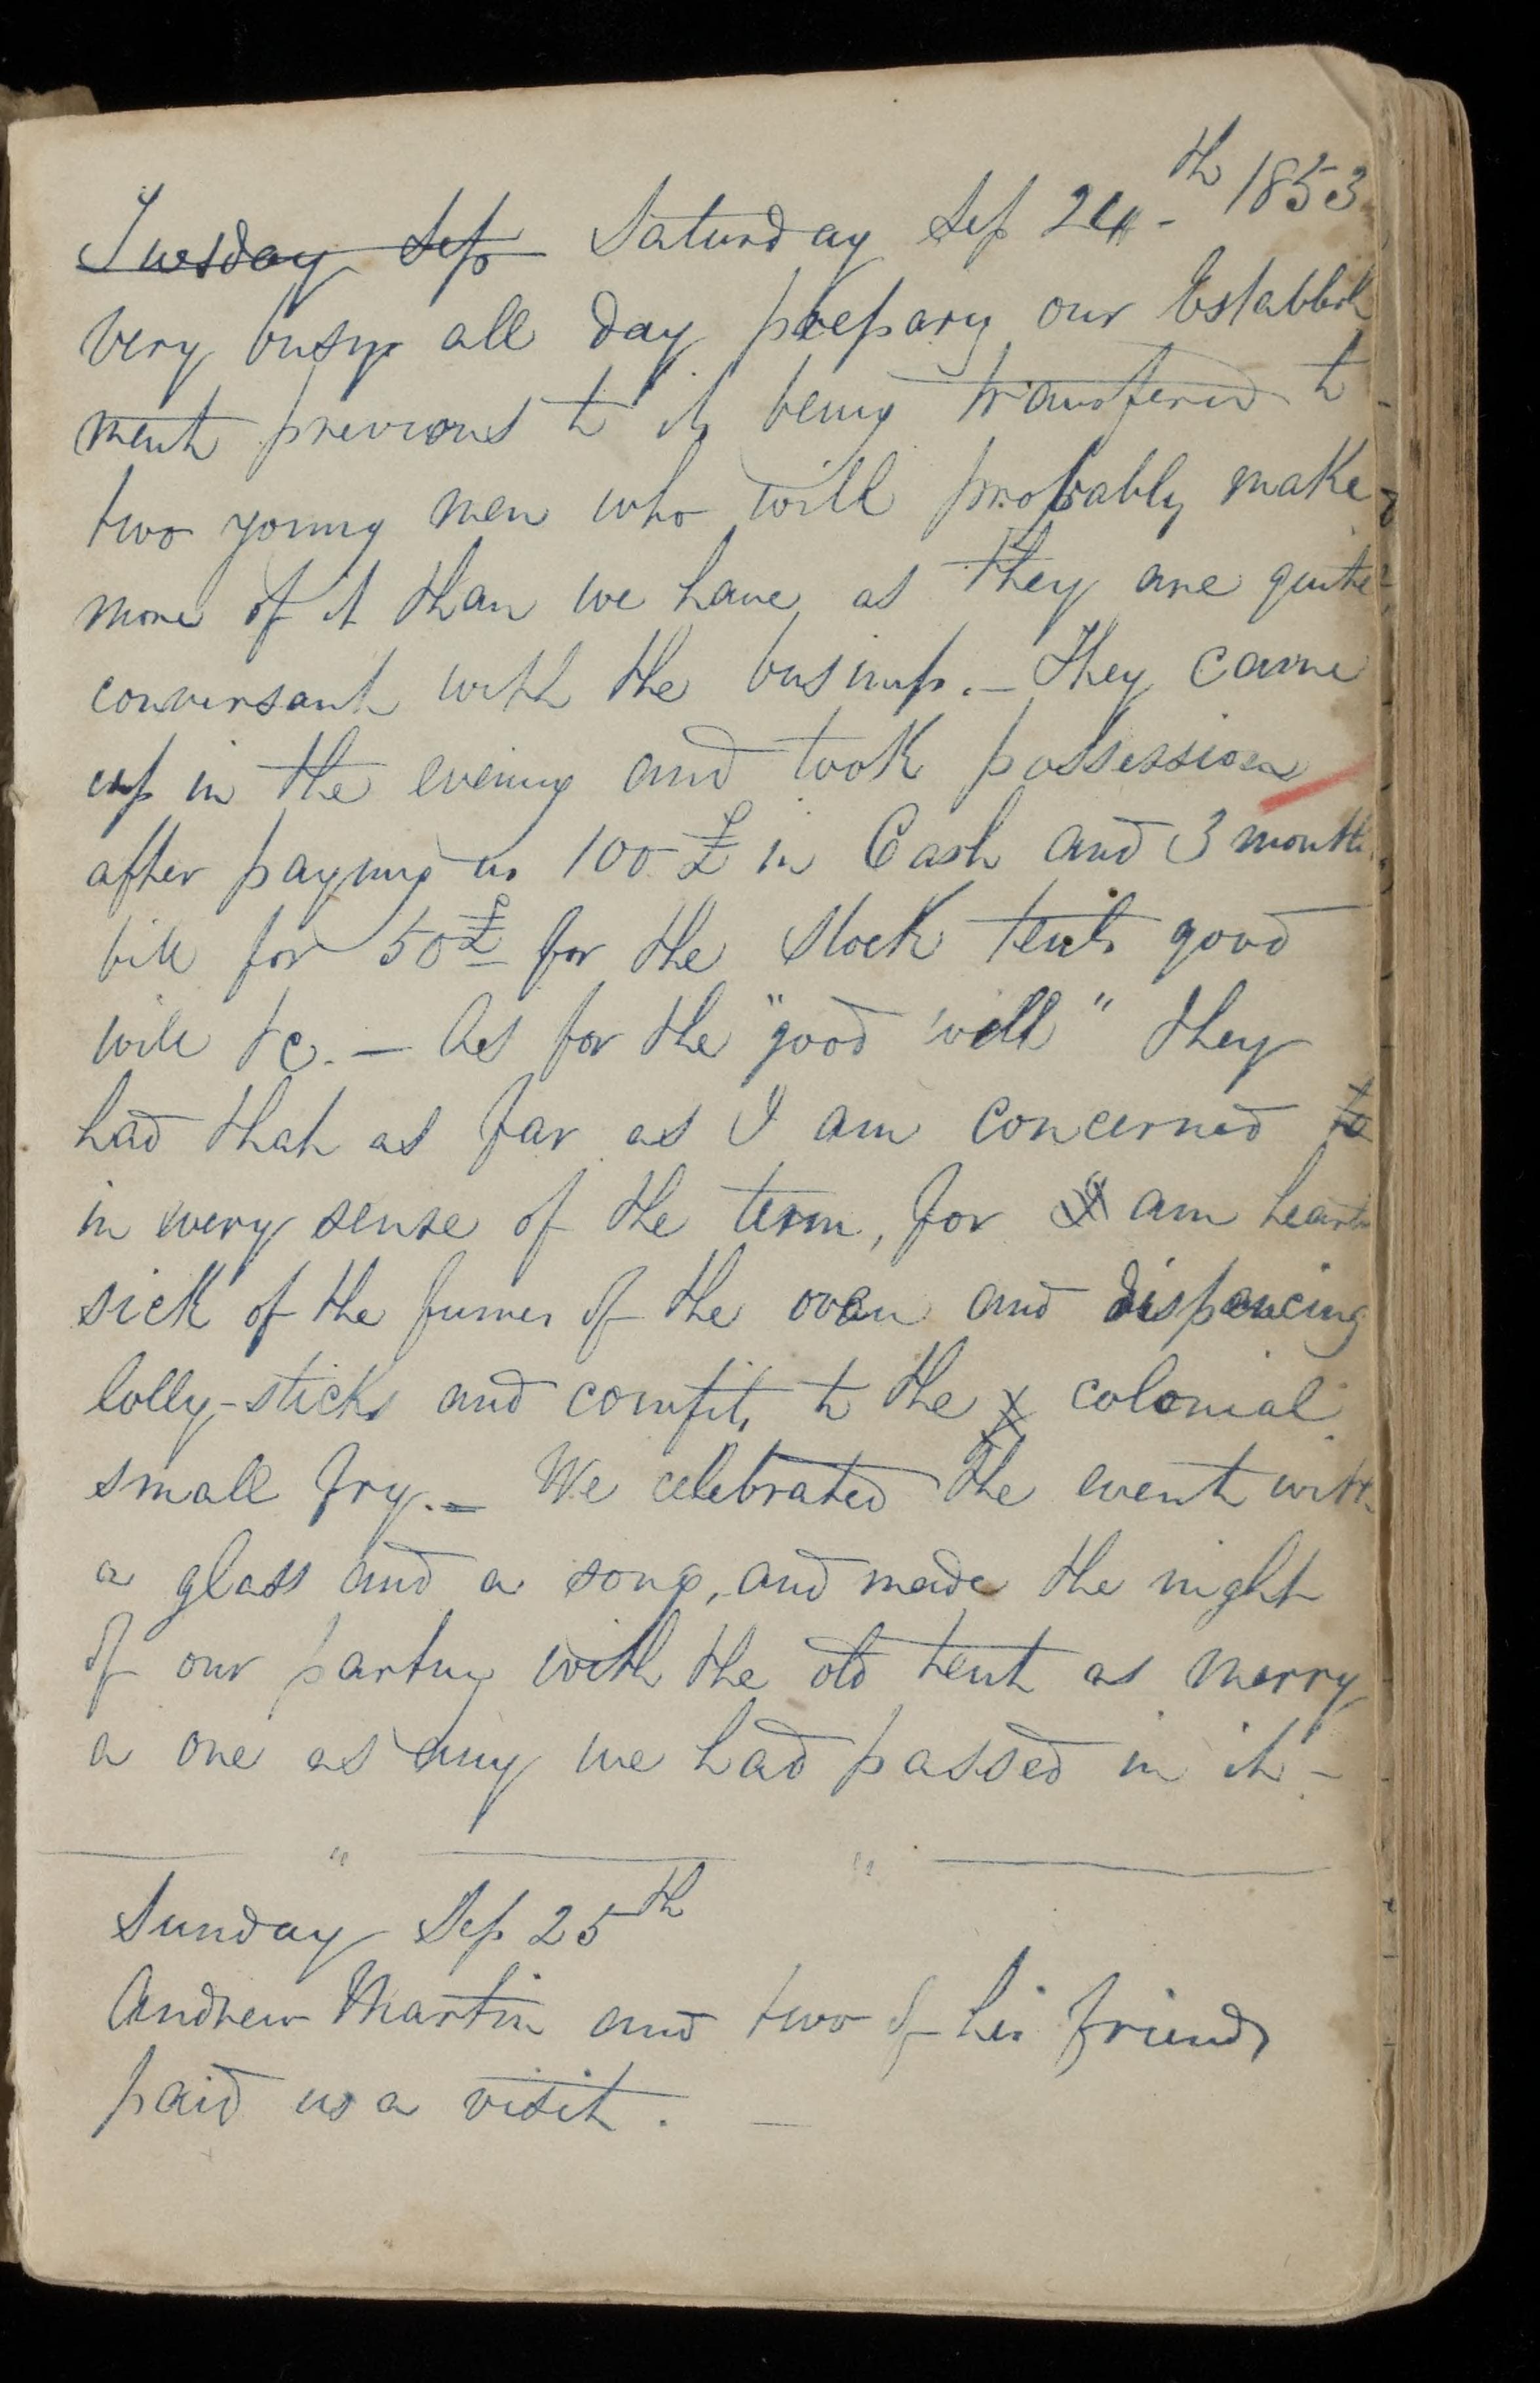 Tuesday Sep Saturday Sep 24th 1853
very busy all day prepary our Establish
ment previous to its being transfered to
two young men who will probably make
more of it than we have, as they are quite
conversant with the business. – They came
up in the evening and took possession
after paying us 100 £ in Cash and 3 month
bill for 50£ for the stock tents good
will &c. – As for the "good will" they
had that as far as I am concerned to
in every sense of the term, for I am heart
sick of the fumes of the oven and dispencing
lolly-sticks and comfits to the colonial
small fry. – We celebrated the event with
a glass and a song, and made the night
of our parting with the old tent as merry
a one as any we had passed in it –
Sunday Sep 25th
Andrew Martin and two of his friends
paid us a visit. –